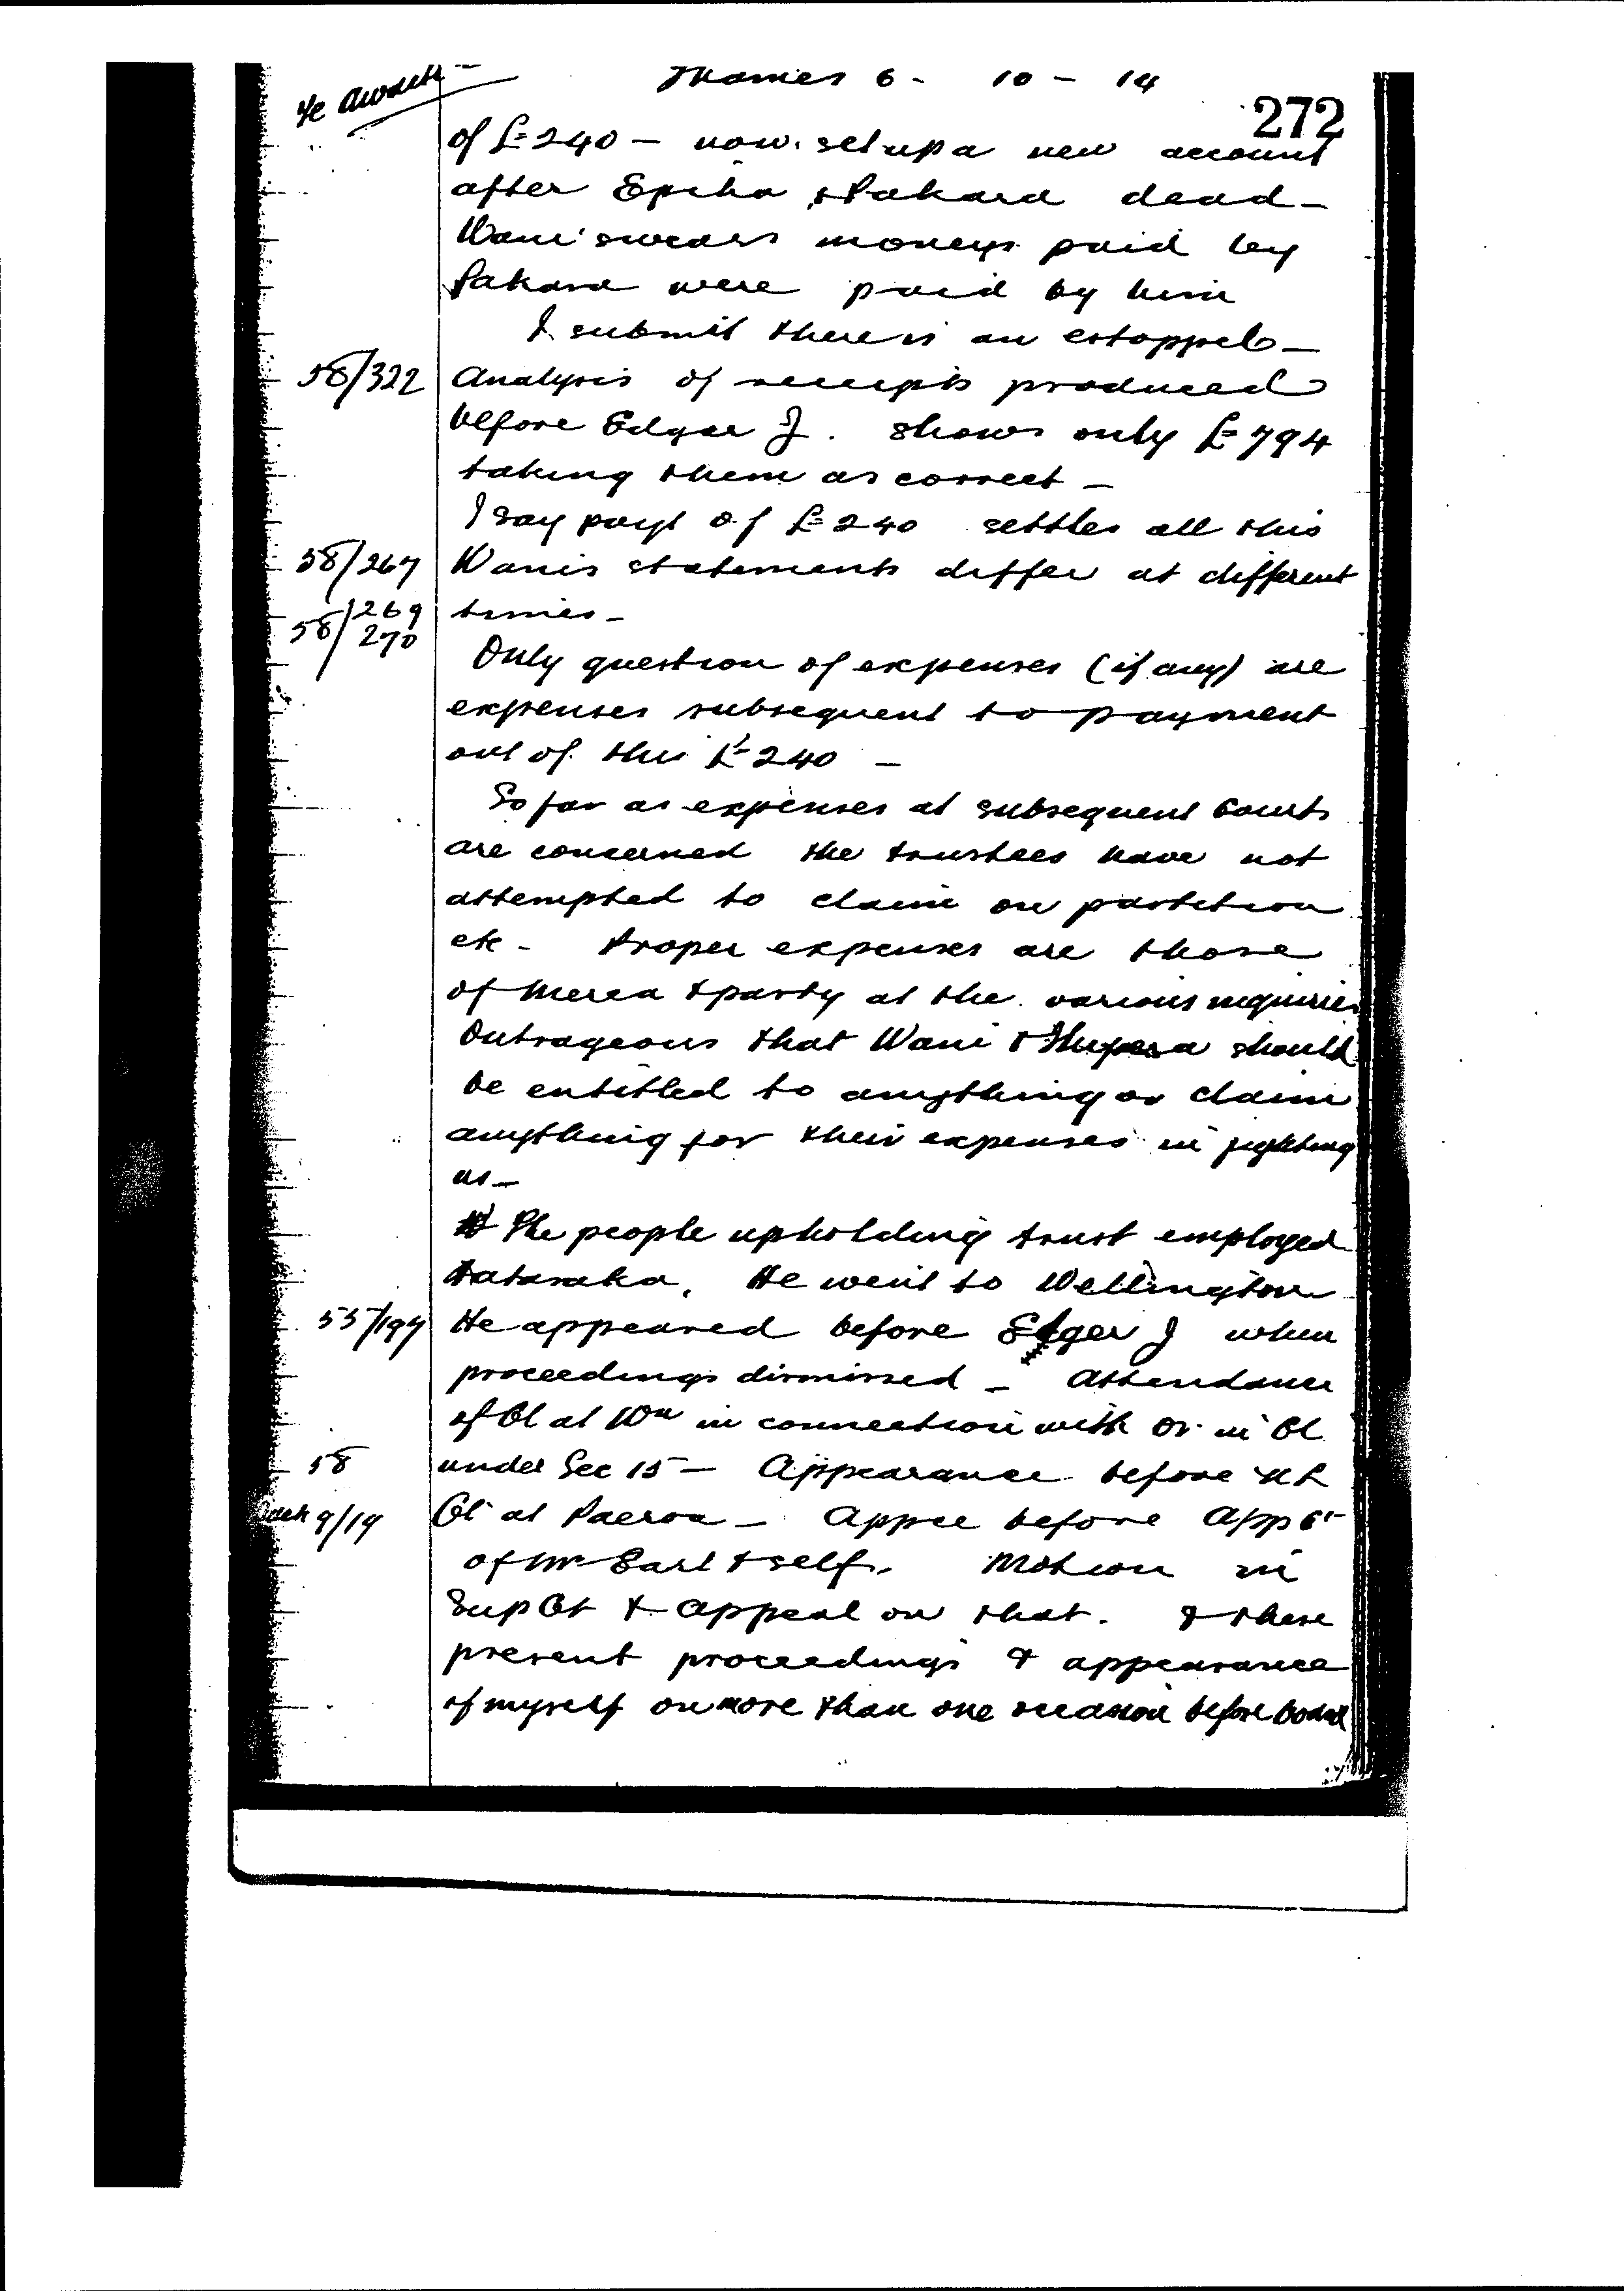 Te Awaiti -
Thames 6 - 10 - 14
272
of £240 - now set up a new account
after Epiha & Pakara dead -
Wani swears moneys paid by
Pakara were paid by him
I submit there is an estoppel -
58/322 Analysis of receipts produced
before Edgar J. shows only £794
taking them as correct -
I say payt of £240 settles all this
58/267 Wanis statements differ at different
58/269 270 times -
Only question of expenses (if any) are
expenses subsequent to payment
out of this £240 -
So far as expenses at subsequent Courts
are concerned the trustees have not
attempted to claim on partition
etc - Proper expenses are those
of Merea & party at the various inquiries
Outrageous that Wani & should
be entitled to anything or claim
anything for their expenses in fighting
us -
The people upholding trust employed
He went to Wellington
55/194 He appeared before Edger J when
proceedings dismissed - Attendance
of Ct at Wn in connection with Or in Cl
58 under Sec 15 - Appearance before
9/19 Ct at Paeroa - Appce before App Ct
of Mr Earl & self. Motion in
Sup Ct & appeal on that. & these
present proceedings & appearance
of myself on more than one occasion before